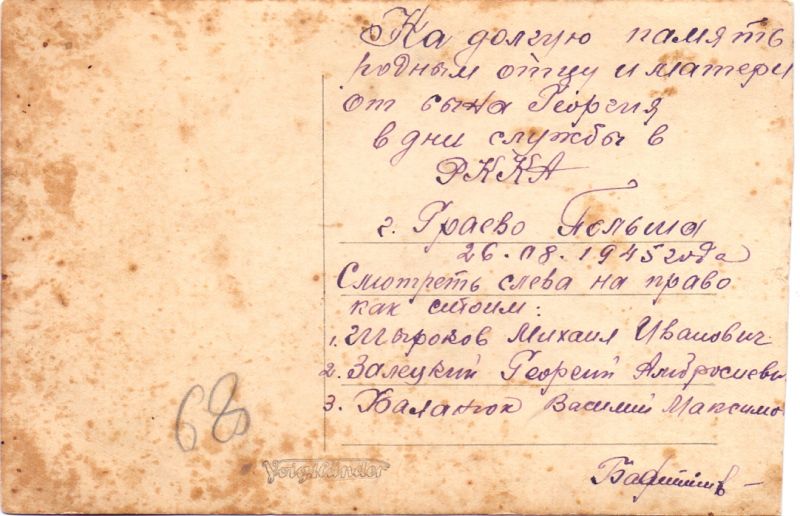 На долгую память
родным отцу и матери
от сына Георгия
в дни службы в
РККА
г. Граево Польша
26.08.1945 года
Смотреть слева на право
как стоим:
1. Шыроков Михаил Иванович
2. Залецкий Георгий Амбросиеви
3. Баланюк Василий Максимо
68
Voigtländer